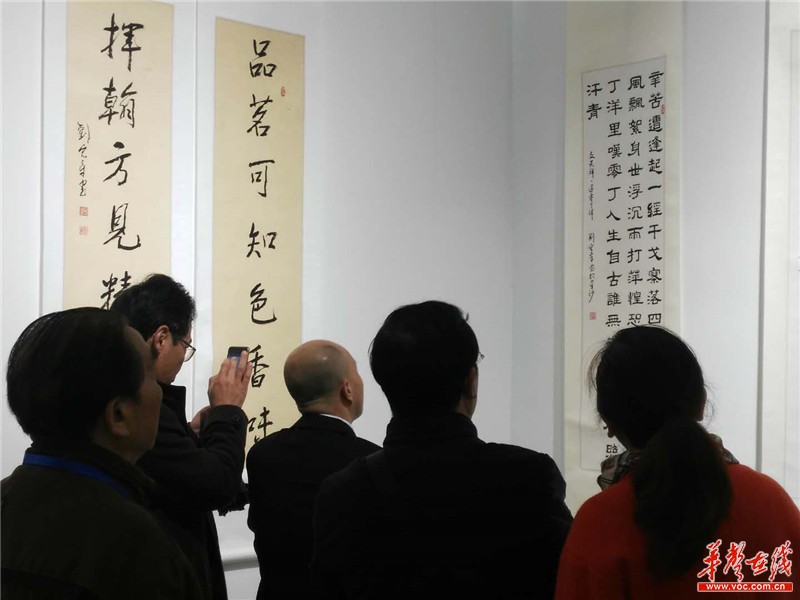 品茗可知色香味
揮翰方見精
辛苦遭逢起一經干戈寥落四
風飄絮身世浮沉雨打萍惶恐
丁洋里嘆零丁人生自古誰無
汗青
華聲在线
www.voc.com.cn